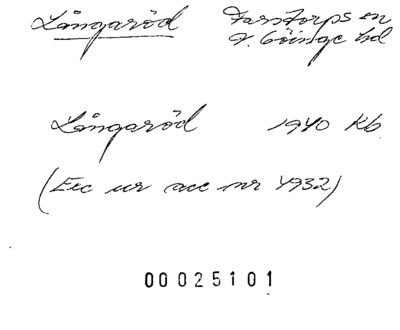 Långaröd Farstorps sn
V. Göinge hd
Långaröd 1940 Kb
(Exc ur acc nr 4932)
00025101